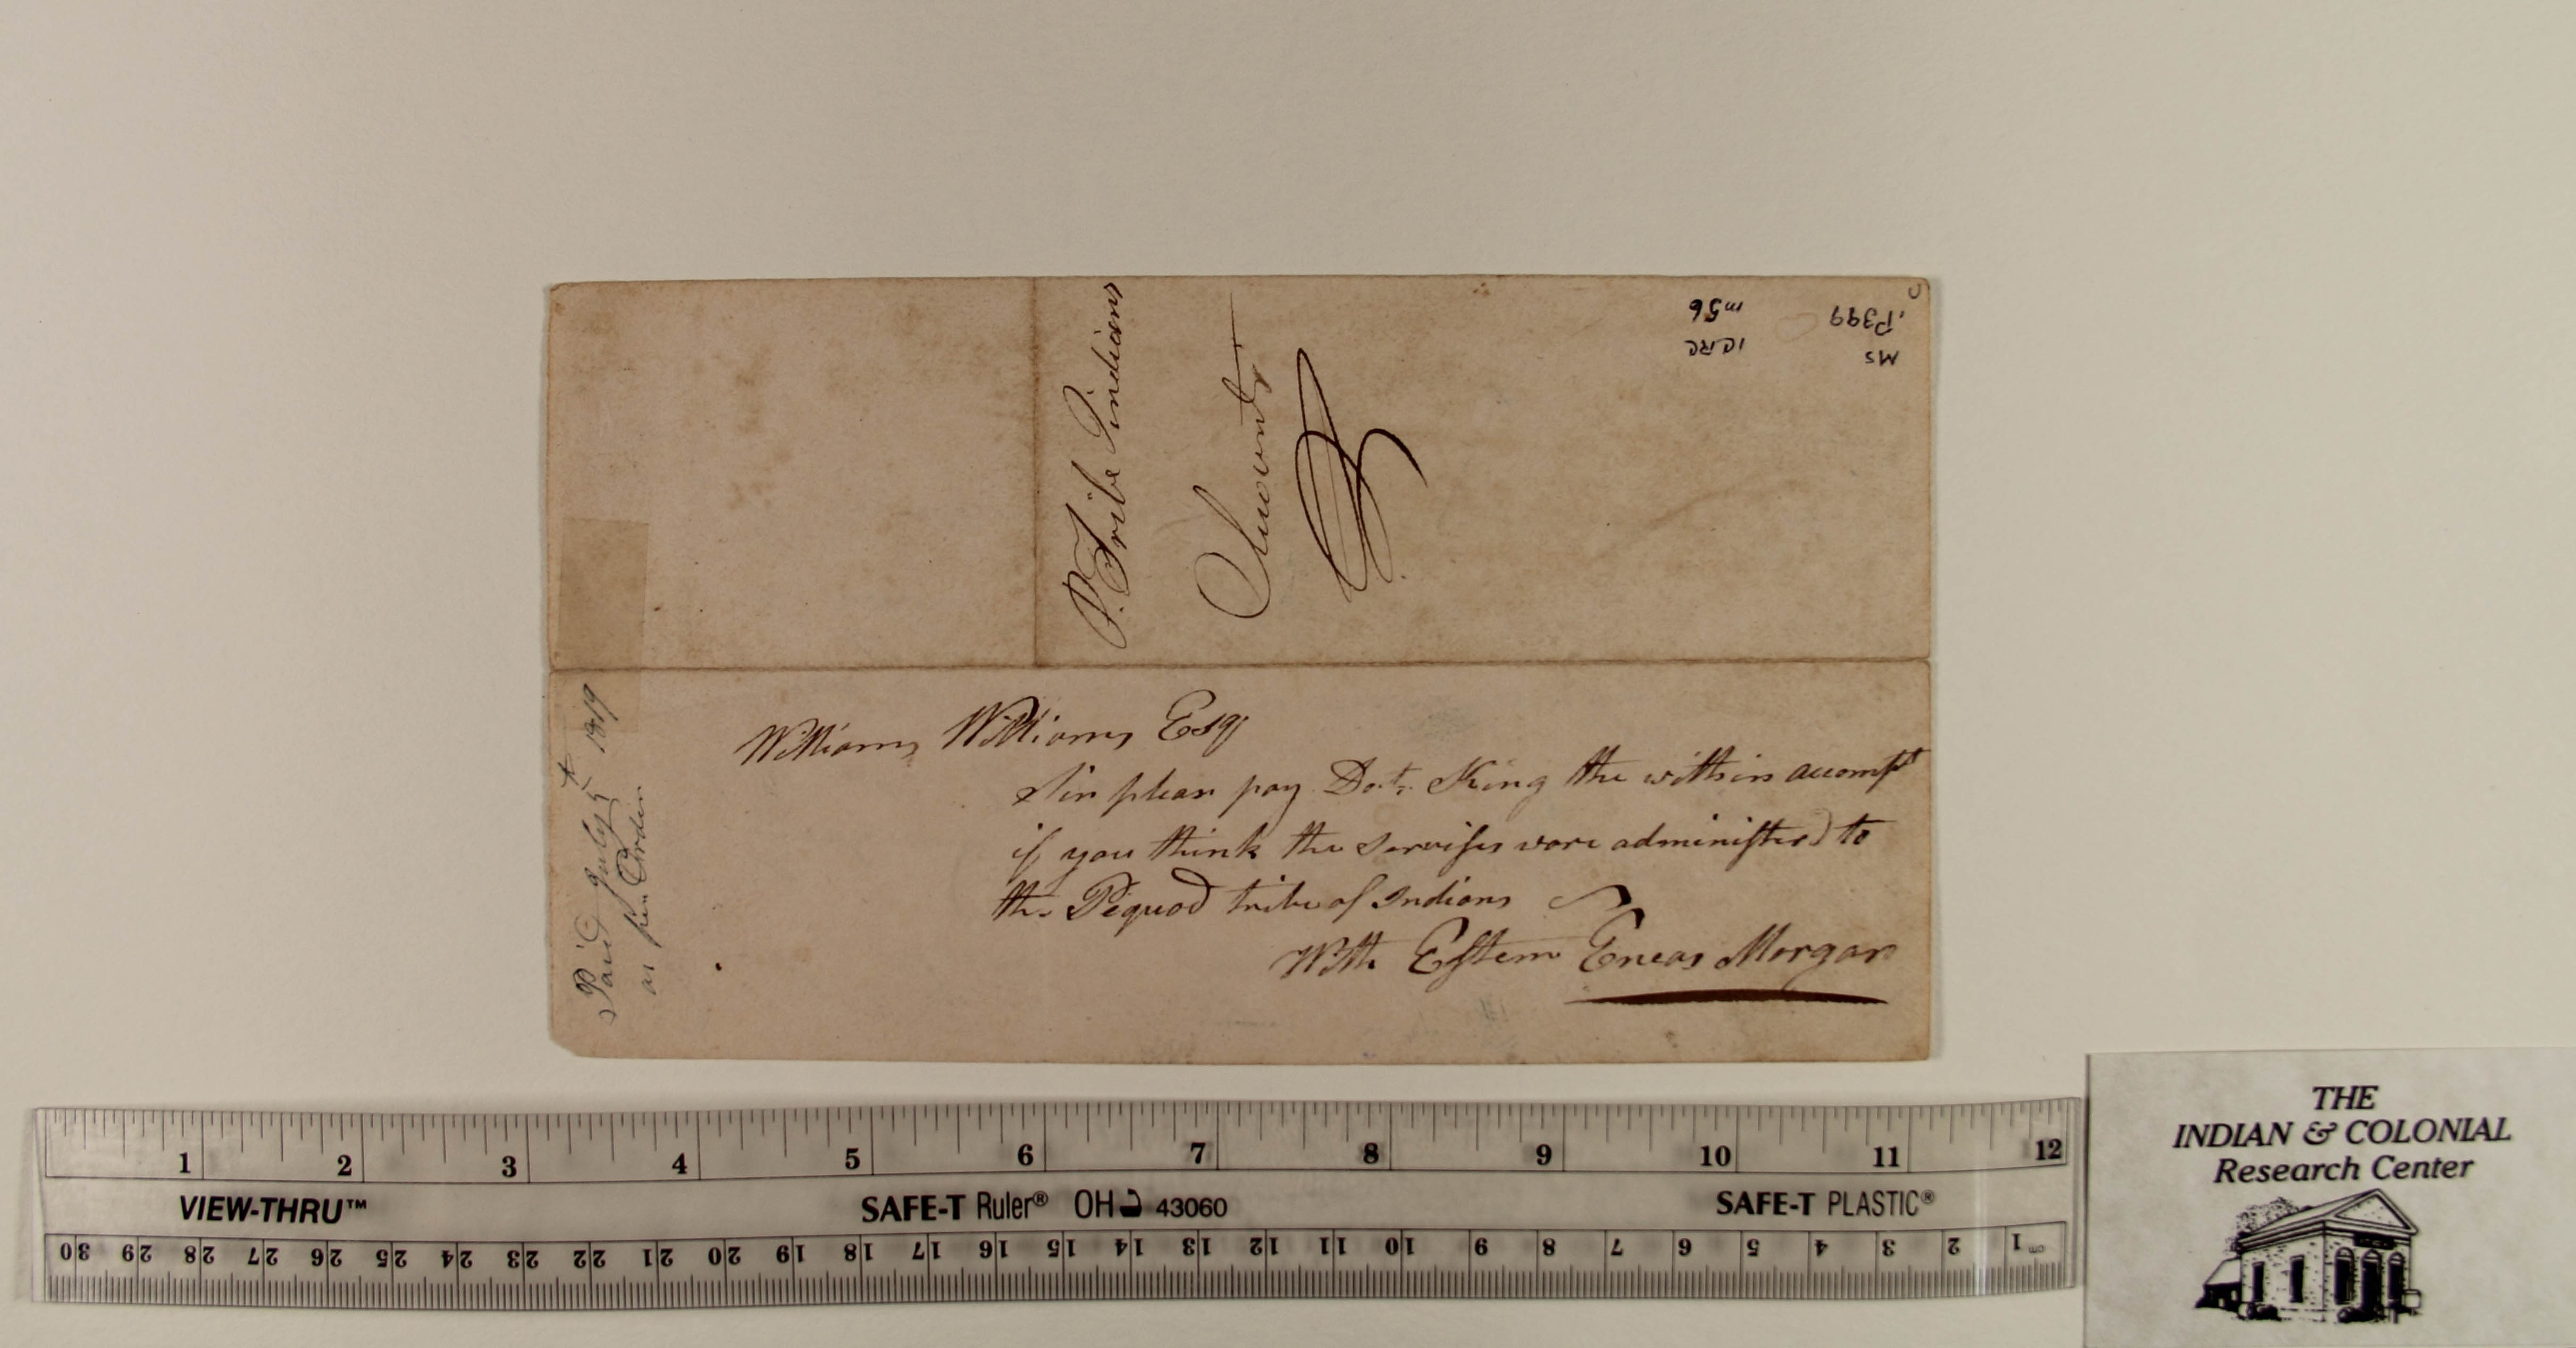 P. Tribe Indians
Account
MS
.P399
ICRC
m56
Williams Williams Esqr
Sir pleas pay Doct. King the within accompt
if you think the servises wore administerd to
the Pequod tribe of Indians
With Esteem Eneas Morgan
Paid July 5t 1819
as per Order
1 2 3 4 5 6 7 8 9 10 11 12
VIEW-THRU™ SAFE-T Ruler® OH 43060 SAFE-T PLASTIC®
30 29 28 27 26 25 24 23 22 21 20 19 18 17 16 15 14 13 12 11 10 9 8 7 6 5 4 3 2 1 cm
THE
INDIAN & COLONIAL
Research Center